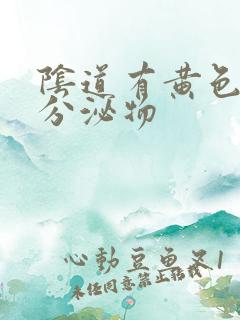 陰道有黄色
分泌物
心動豆魚叉1
未经同意禁止转载